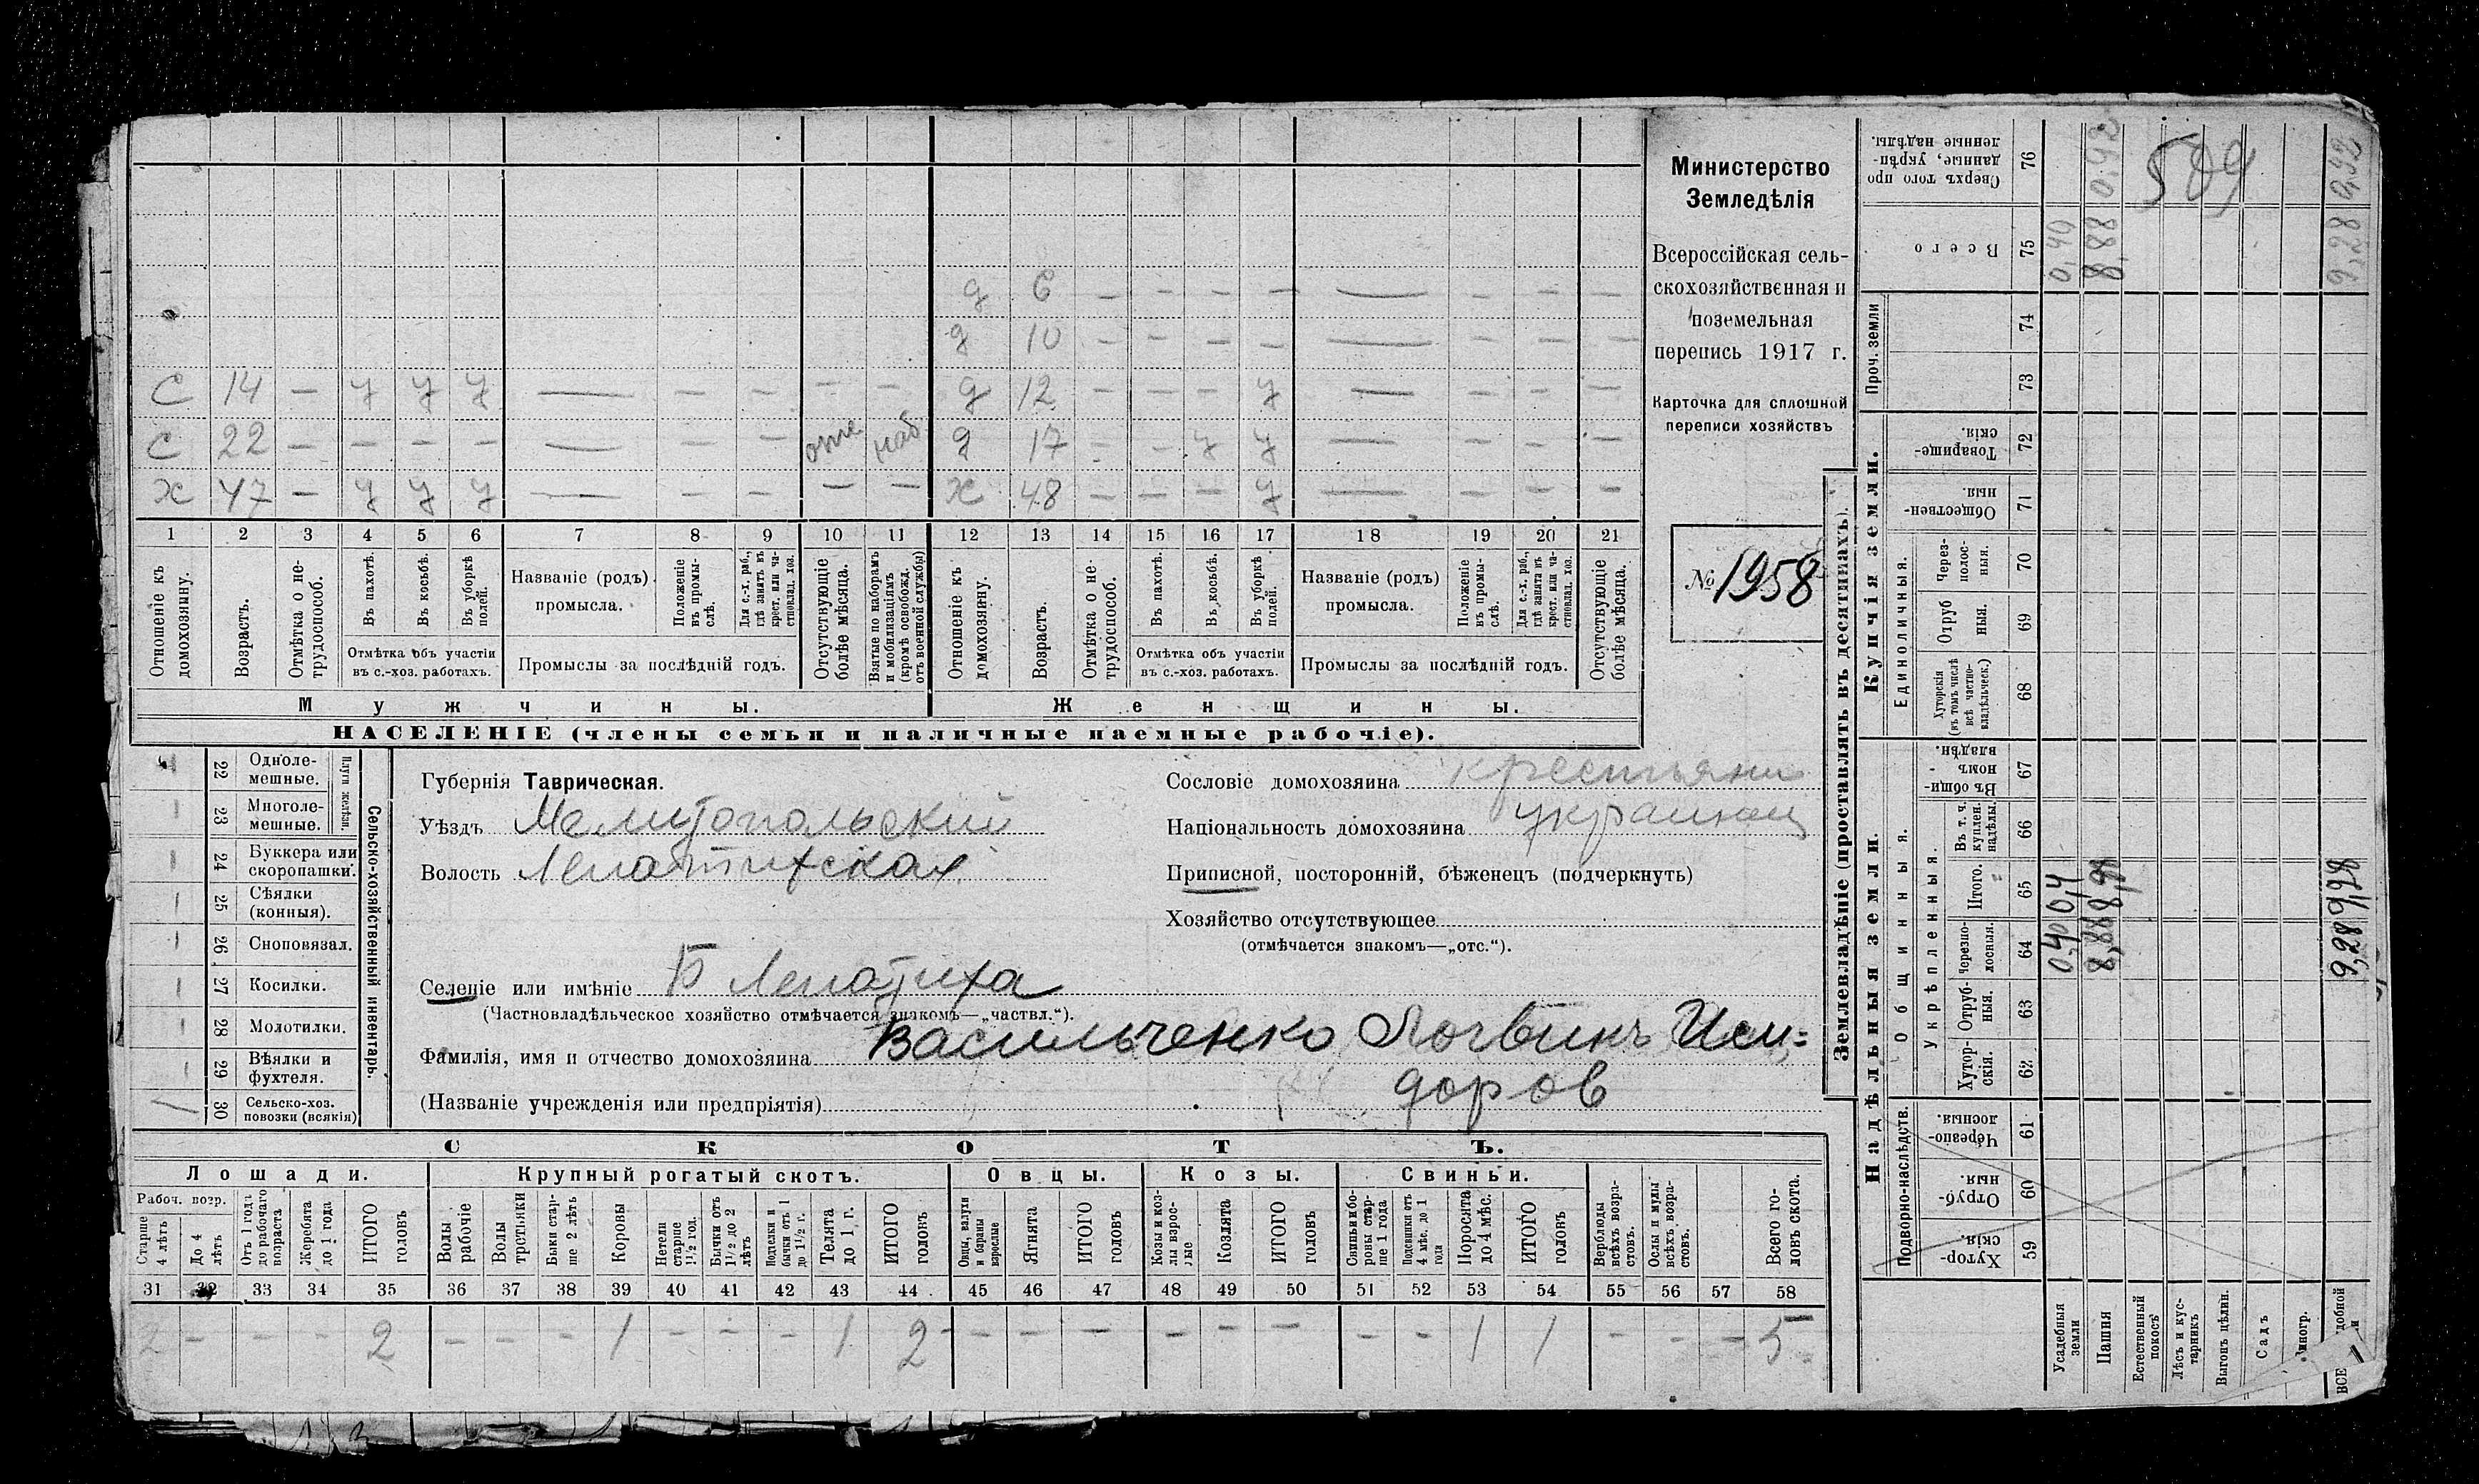 С 14 — у у у — — — — —
С 22 — — — — — — — отс наб
х 47 — у у у — — — — —
д 6 — — — — — — — —
д 10 — — — — — — — —
д 12 — — — у — — — —
д 17 — — у у — — — —
х 48 — — — у — — — —
1 2 3 4 5 6 7 8 9 10 11 12 13 14 15 16 17 18 19 20 21
Отношеніе къ домохозяину.
Возрастъ.
Отмѣтка о нетрудоспособ.
Въ пахотѣ.
Въ косьбѣ.
Въ уборкѣ полей.
Отмѣтка объ участіи
въ с.-хоз. работахъ.
Названіе (родъ)
промысла.
Положеніе въ промыслѣ.
Для с.-х. раб., гдѣ занятъ въ крест. или частновлад. хоз.
Промыслы за послѣдній годъ.
Отсутствующіе болѣе мѣсяца.
Взятые по наборамъ и мобилизаціямъ (кромѣ освобожд. отъ военной службы)
Отношеніе къ домохозяину.
Возрастъ.
Отмѣтка о нетрудоспособ.
Въ пахотѣ.
Въ косьбѣ.
Въ уборкѣ полей.
Отмѣтка объ участіи
въ с.-хоз. работахъ.
Названіе (родъ)
промысла.
Положеніе въ промыслѣ.
Для с.-х. раб., гдѣ занята въ крест. или частновлад. хоз.
Промыслы за послѣдній годъ.
Отсутствующіе болѣе мѣсяца.
Мужчины.
Женщины.
НАСЕЛЕНІЕ (члены семьи и наличные наемные рабочіе).
Министерство
Земледѣлія
Всероссійская сель-
скохозяйственная и
поземельная
перепись 1917 г.
Карточка для сплошной
переписи хозяйствъ
№ 1958
Сельско-хозяйственный инвентарь.
Плуги желѣзн.
22 Однолемешные.
23 Многолемешные.
24 Буккера или скоропашки.
25 Сѣялки (конныя).
26 Сноповязал.
27 Косилки.
28 Молотилки.
29 Вѣялки и фухтеля.
30 Сельско-хоз. повозки (всякія)
Губернія Таврическая.
Уѣздъ Мелитопольский
Волость Лепатихская
Селеніе или имѣніе Б Лепатиха
(Частновладѣльческое хозяйство отмѣчается знакомъ—„частвл.“).
Фамилія, имя и отчество домохозяина Васильченко Логвинъ Иси=
доров
(Названіе учрежденія или предпріятія)
Сословіе домохозяина крестьянин
Національность домохозяина украинец
Приписной, посторонній, бѣженецъ (подчеркнуть)
Хозяйство отсутствующее
(отмѣчается знакомъ—„отс.“).
СКОТЪ.
Лошади. Крупный рогатый скотъ. Овцы. Козы. Свиньи.
Рабоч. возр.
Старше 4 лѣтъ
До 4 лѣтъ
Отъ 1 года до рабочаго возраста
Жеребята до 1 года
ИТОГО головъ
Волы рабочіе
Волы третьяки
Быки старше 2 лѣтъ
Коровы
Нетели старше 1½ год.
Бычки отъ 1½ до 2 лѣтъ
Подтелки и бычки отъ 1 до 1½ г.
Телята до 1 г.
ИТОГО головъ
Овцы, валухи и бараны взрослые
Ягнята
ИТОГО головъ
Козы и козлы взрослые
Козлята
ИТОГО головъ
Свиньи и боровы старше 1 года
Подсвинки отъ 4 мѣс. до 1 года
Поросята до 4 мѣс.
ИТОГО головъ
Верблюды всѣхъ возрастовъ.
Ослы и мулы всѣхъ возрастовъ.
Всего головъ скота.
31 32 33 34 35 36 37 38 39 40 41 42 43 44 45 46 47 48 49 50 51 52 53 54 55 56 57 58
2 — — — 2 — — — 1 — — — 1 2 — — — — — — — — 1 1 — — — 5
Землевладѣніе (проставлять въ десятинахъ).
Надѣльныя земли.
Купчія земли.
Проч. земли
Подворно-наслѣдств.
Общинныя.
Укрѣпленныя.
Единоличныя.
Хуторскія. 59
Отрубныя. 60
Черезполосныя. 61
Хуторскія. 62
Отрубныя. 63
Черезполосныя. 64
Итого. 65
Въ т. ч. куплен. надѣлы. 66
Въ общинномъ владѣн. 67
Хуторскія (въ томъ числѣ всѣ частновладѣльческ.) 68
Отрубныя. 69
Черезполосныя. 70
Общественныя. 71
Товарищескія. 72
73
74
Всего 75
Сверхъ того проданные, укрѣпленные надѣлы. 76
Усадебныя земли 0,40 0,4 0,40
Пашня 8,88 8,88 0,92
Естественный покосъ
Лѣсъ и кустарникъ
Выгонъ цѣлин.
Садъ
9,28 9,28 9,28 0,92
509